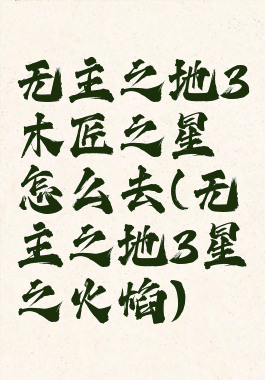 无主之地3
木匠之星
怎么去(无
主之地3星
之火焰)